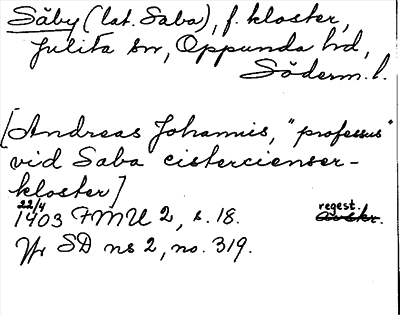 Säby (lat. Saba), f. kloster,
Julita sn, Oppunda hd,
Söderm. l.
[Andreas Johannis, "professus"
vid Saba cistercienser-
kloster]
22/4 regest.
1403 FMU 2, s. 18. avskr.
Jfr SD ns 2, no. 319.